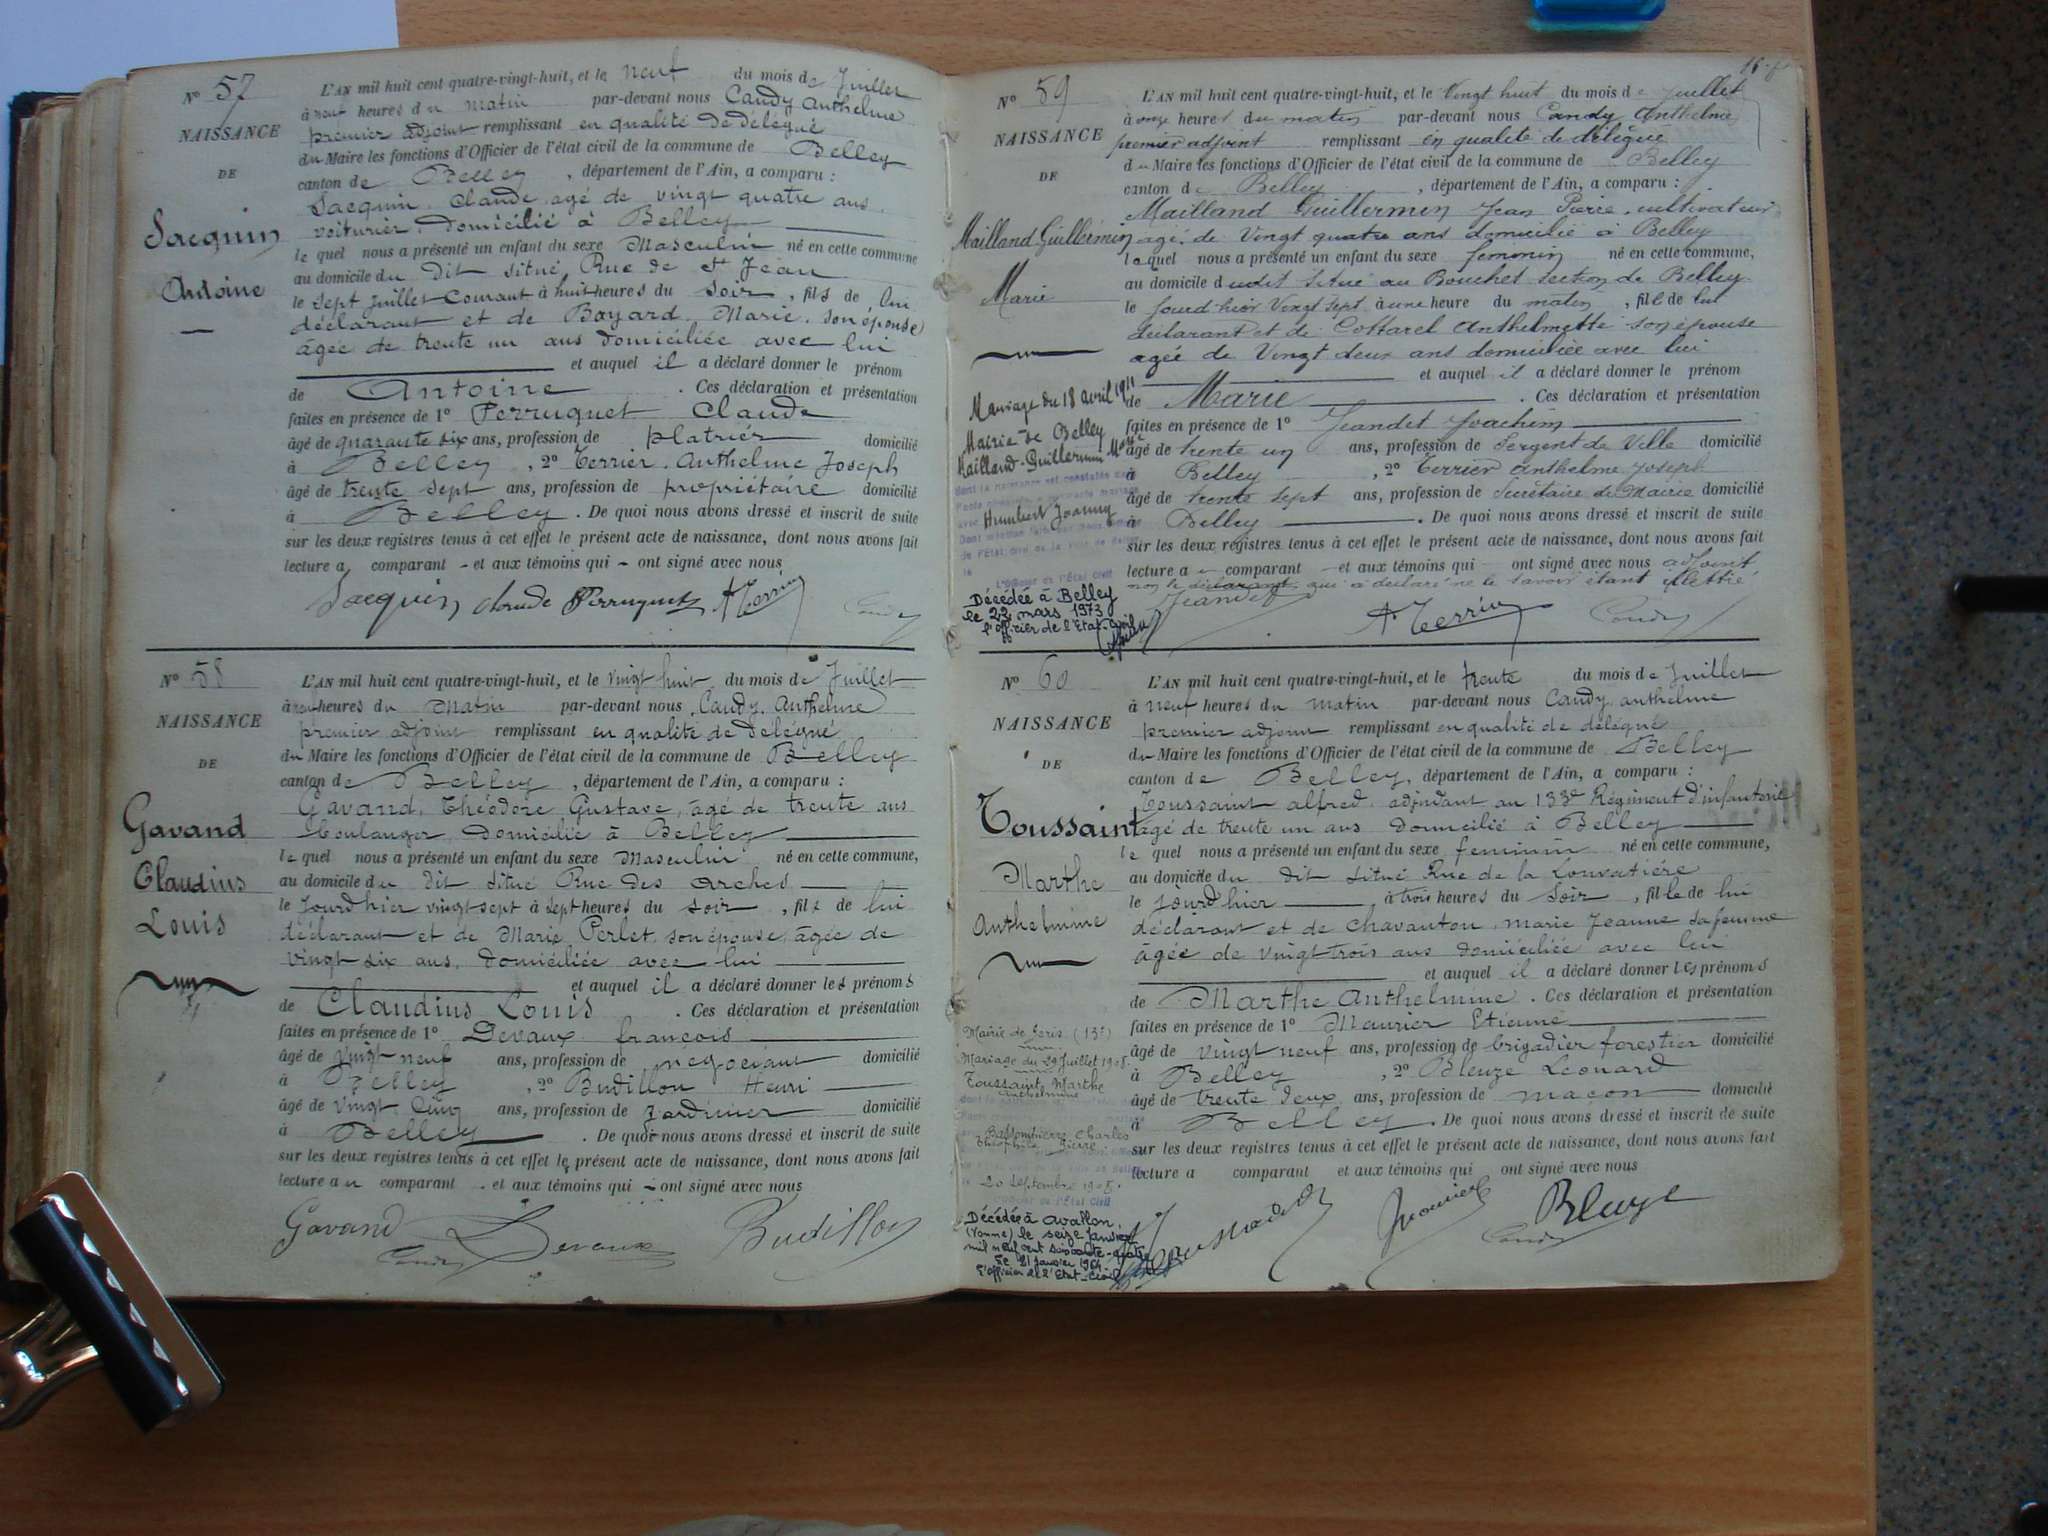 No 57
NAISSANCE
DE
Jacquin
Antoine
L'AN mil huit cent quatre-vingt-huit, et le neuf du mois de Juillet
à neuf heures du matin par-devant nous Candy Anthelme
premier adjoint remplissant en qualité de délégué
du Maire les fonctions d'Officier de l'état civil de la commune de Belley
canton de Belley, département de l'Ain, a comparu :
Jacquin Claude agé de vingt quatre ans
voiturier, domicilié à Belley
lequel nous a présenté un enfant du sexe Masculin né en cette commune
au domicile du dit situé Rue de St Jean
le sept Juillet courant à huit heures du Soir, fils de lui
déclarant et de Boyard Marie, son épouse
âgée de trente un ans domiciliée avec lui
et auquel il a déclaré donner le prénom
de Antoine. Ces déclaration et présentation
faites en présence de 1º Perruquet Claude
âgé de quarante six ans, profession de platrier domicilié
à Belley, 2º Terrier Anthelme Joseph
âgé de trente sept ans, profession de propriétaire domicilié
à Belley. De quoi nous avons dressé et inscrit de suite
sur les deux registres tenus à cet effet le présent acte de naissance, dont nous avons fait
lecture a comparant et aux témoins qui ont signé avec nous
Jacquin Claude Perruquet A Terrier Candy
No 58
NAISSANCE
DE
Gavand
Claudius
Louis
L'AN mil huit cent quatre-vingt-huit, et le vingt huit du mois de Juillet
à neuf heures du Matin par-devant nous Candy Anthelme
premier adjoint remplissant en qualité de délégué
du Maire les fonctions d'Officier de l'état civil de la commune de Belley
canton de Belley, département de l'Ain, a comparu :
Gavand, Théodore Gustave, âgé de trente ans
Boulanger, domicilié à Belley
lequel nous a présenté un enfant du sexe Masculin né en cette commune,
au domicile du dit situé Rue des Arches
le Jourd'hier vingt sept à sept heures du soir, fils de lui
déclarant et de Marie Perlet son épouse, âgée de
vingt six ans, domiciliée avec lui
et auquel il a déclaré donner les prénoms
de Claudius Louis. Ces déclaration et présentation
faites en présence de 1º Devaux françois
âgé de vingt neuf ans, profession de négociant domicilié
à Belley, 2º Budillon Henri
âgé de vingt cinq ans, profession de Jardinier domicilié
à Belley. De quoi nous avons dressé et inscrit de suite
sur les deux registres tenus à cet effet le présent acte de naissance, dont nous avons fait
lecture au comparant et aux témoins qui ont signé avec nous
Gavand Candy Devaux Budillon
No 59
NAISSANCE
DE
Mailland Guillermin
Marie
L'AN mil huit cent quatre-vingt-huit, et le Vingt huit du mois de Juillet
à onze heures du matin par-devant nous Candy Anthelme
premier adjoint remplissant en qualité de délégué
du Maire les fonctions d'Officier de l'état civil de la commune de Belley
canton de Belley, département de l'Ain, a comparu :
Mailland Guillermin Jean Pierre, cultivateur
agé de Vingt quatre ans domicilié à Belley
lequel nous a présenté un enfant du sexe féminin né en cette commune,
au domicile dudit situé au Bouchet section de Belley
le Jourd'hier Vingt sept à une heure du matin, fille de lui
déclarant et de Cottarel Anthelmette son épouse
agée de Vingt deux ans domiciliée avec lui
et auquel il a déclaré donner le prénom
de Marie. Ces déclaration et présentation
faites en présence de 1º Jeandet Joachim
âgé de trente un ans, profession de Sergent de Ville domicilié
à Belley, 2º Terrier Anthelme Joseph
âgé de trente sept ans, profession de Secrétaire de Mairie domicilié
à Belley. De quoi nous avons dressé et inscrit de suite
sur les deux registres tenus à cet effet le présent acte de naissance, dont nous avons fait
lecture au comparant et aux témoins qui ont signé avec nous adjoint
non le déclarant qui a déclaré ne le savoir étant illettré
Jeandet A Terrier Candy
Mariage du 18 avril 1911
Mairie de Belley
Mailland-Guillermin Marie
dont la naissance est constatée
avec Humbert Joanny
de l'État civil de la Ville de Belley
L'Officier de l'État Civil
Décédée à Belley
le 22 mars 1973
l'officier de l'État-civil
No 60
NAISSANCE
DE
Toussaint
Marthe
Anthelmine
L'AN mil huit cent quatre-vingt-huit, et le trente du mois de Juillet
à neuf heures du matin par-devant nous Candy anthelme
premier adjoint remplissant en qualité de délégué
du Maire les fonctions d'Officier de l'état civil de la commune de Belley
canton de Belley, département de l'Ain, a comparu :
Toussaint alfred, adjudant au 133e Régiment d'infanterie
âgé de trente un ans domicilié à Belley
lequel nous a présenté un enfant du sexe feminin né en cette commune,
au domicile du dit situé Rue de la Louvatière
le jourd'hier à trois heures du Soir, fille de lui
déclarant et de Chavanton, marie Jeanne sa femme
âgée de vingt trois ans domiciliée avec lui
et auquel il a déclaré donner les prénoms
de Marthe Anthelmine. Ces déclaration et présentation
faites en présence de 1º Meunier Etienne
âgé de vingt neuf ans, profession de brigadier forestier domicilié
à Belley, 2º Bleuze Léonard
âgé de trente deux ans, profession de maçon domicilié
à Belley. De quoi nous avons dressé et inscrit de suite
sur les deux registres tenus à cet effet le présent acte de naissance, dont nous avons fait
lecture a comparant et aux témoins qui ont signé avec nous
Meunier Bleuze Candy
Mairie de Paris (13e)
Mariage du 29 Juillet 1908
Toussaint Marthe
Anthelmine
Charles
Pierre
20 Septembre 1908.
l'Officier de l'État Civil
Décédée à Avallon
(Yonne) le seize Janvier
mil neuf cent soixante-quatre
le 21 janvier 1964
l'Officier de l'État-Civil